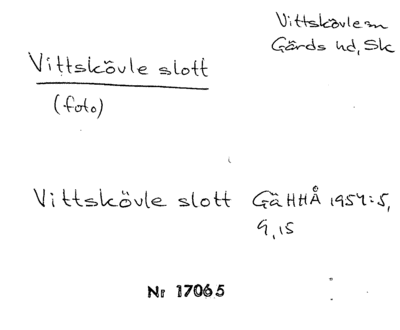 Vittskövle sn
Gärds hd, Sk
Vittskövle slott
(foto)
Vittskövle slott GäHHÅ 1957:5,
9, 15
Nr 17065